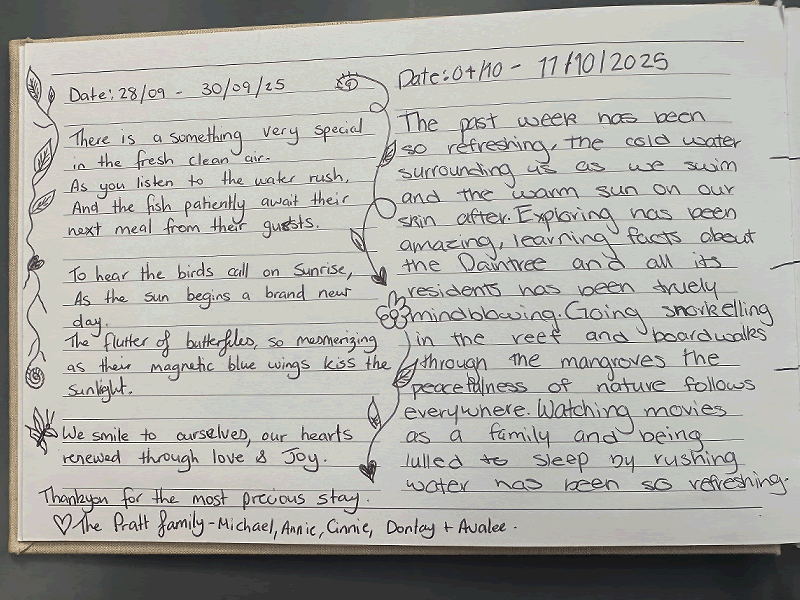 Date: 28/09 - 30/09/25
There is a something very special
in the fresh clean air.
As you listen to the water rush,
And the fish patiently await their
next meal from their guests.
To hear the birds call on Sunrise,
As the sun begins a brand new
day.
The flutter of butterflies, so mesmerizing
as their magnetic blue wings kiss the
sunlight.
We smile to ourselves, our hearts
renewed through love & Joy.
Thankyou for the most precious stay.
♡ The Pratt family - Michael, Annie, Cinnie, Dontay + Avalee.
Date: 04/10 - 11/10/2025
The past week has been
so refreshing, the cold water
surrounding us as we swim
and the warm sun on our
skin after. Exploring has been
amazing, learning facts about
the Daintree and all its
residents has been truely
mindblowing. Going snorkelling
in the reef and boardwalks
through the mangroves the
peacefulness of nature follows
everywhere. Watching movies
as a family and being
lulled to sleep by rushing
water has been so refreshing.